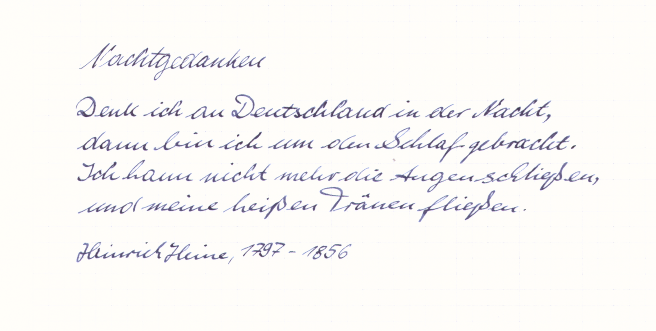 Nachtgedanken
Denk ich an Deutschland in der Nacht,
dann bin ich um den Schlaf gebracht.
Ich kann nicht mehr die Augen schließen,
und meine heißen Tränen fließen.
Heinrich Heine, 1797 - 1856